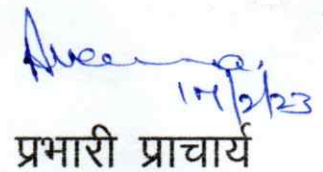 17/2/23
प्रभारी प्राचार्य